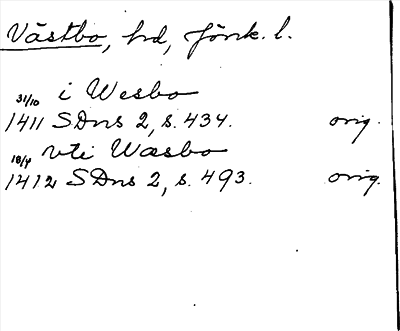 Västbo, hd, Jönk. l.
31/10 i Wesbo
1411 SDns 2, s. 434. orig.
18/4 vti Wasbo
1412 SDns 2, s. 493. orig.